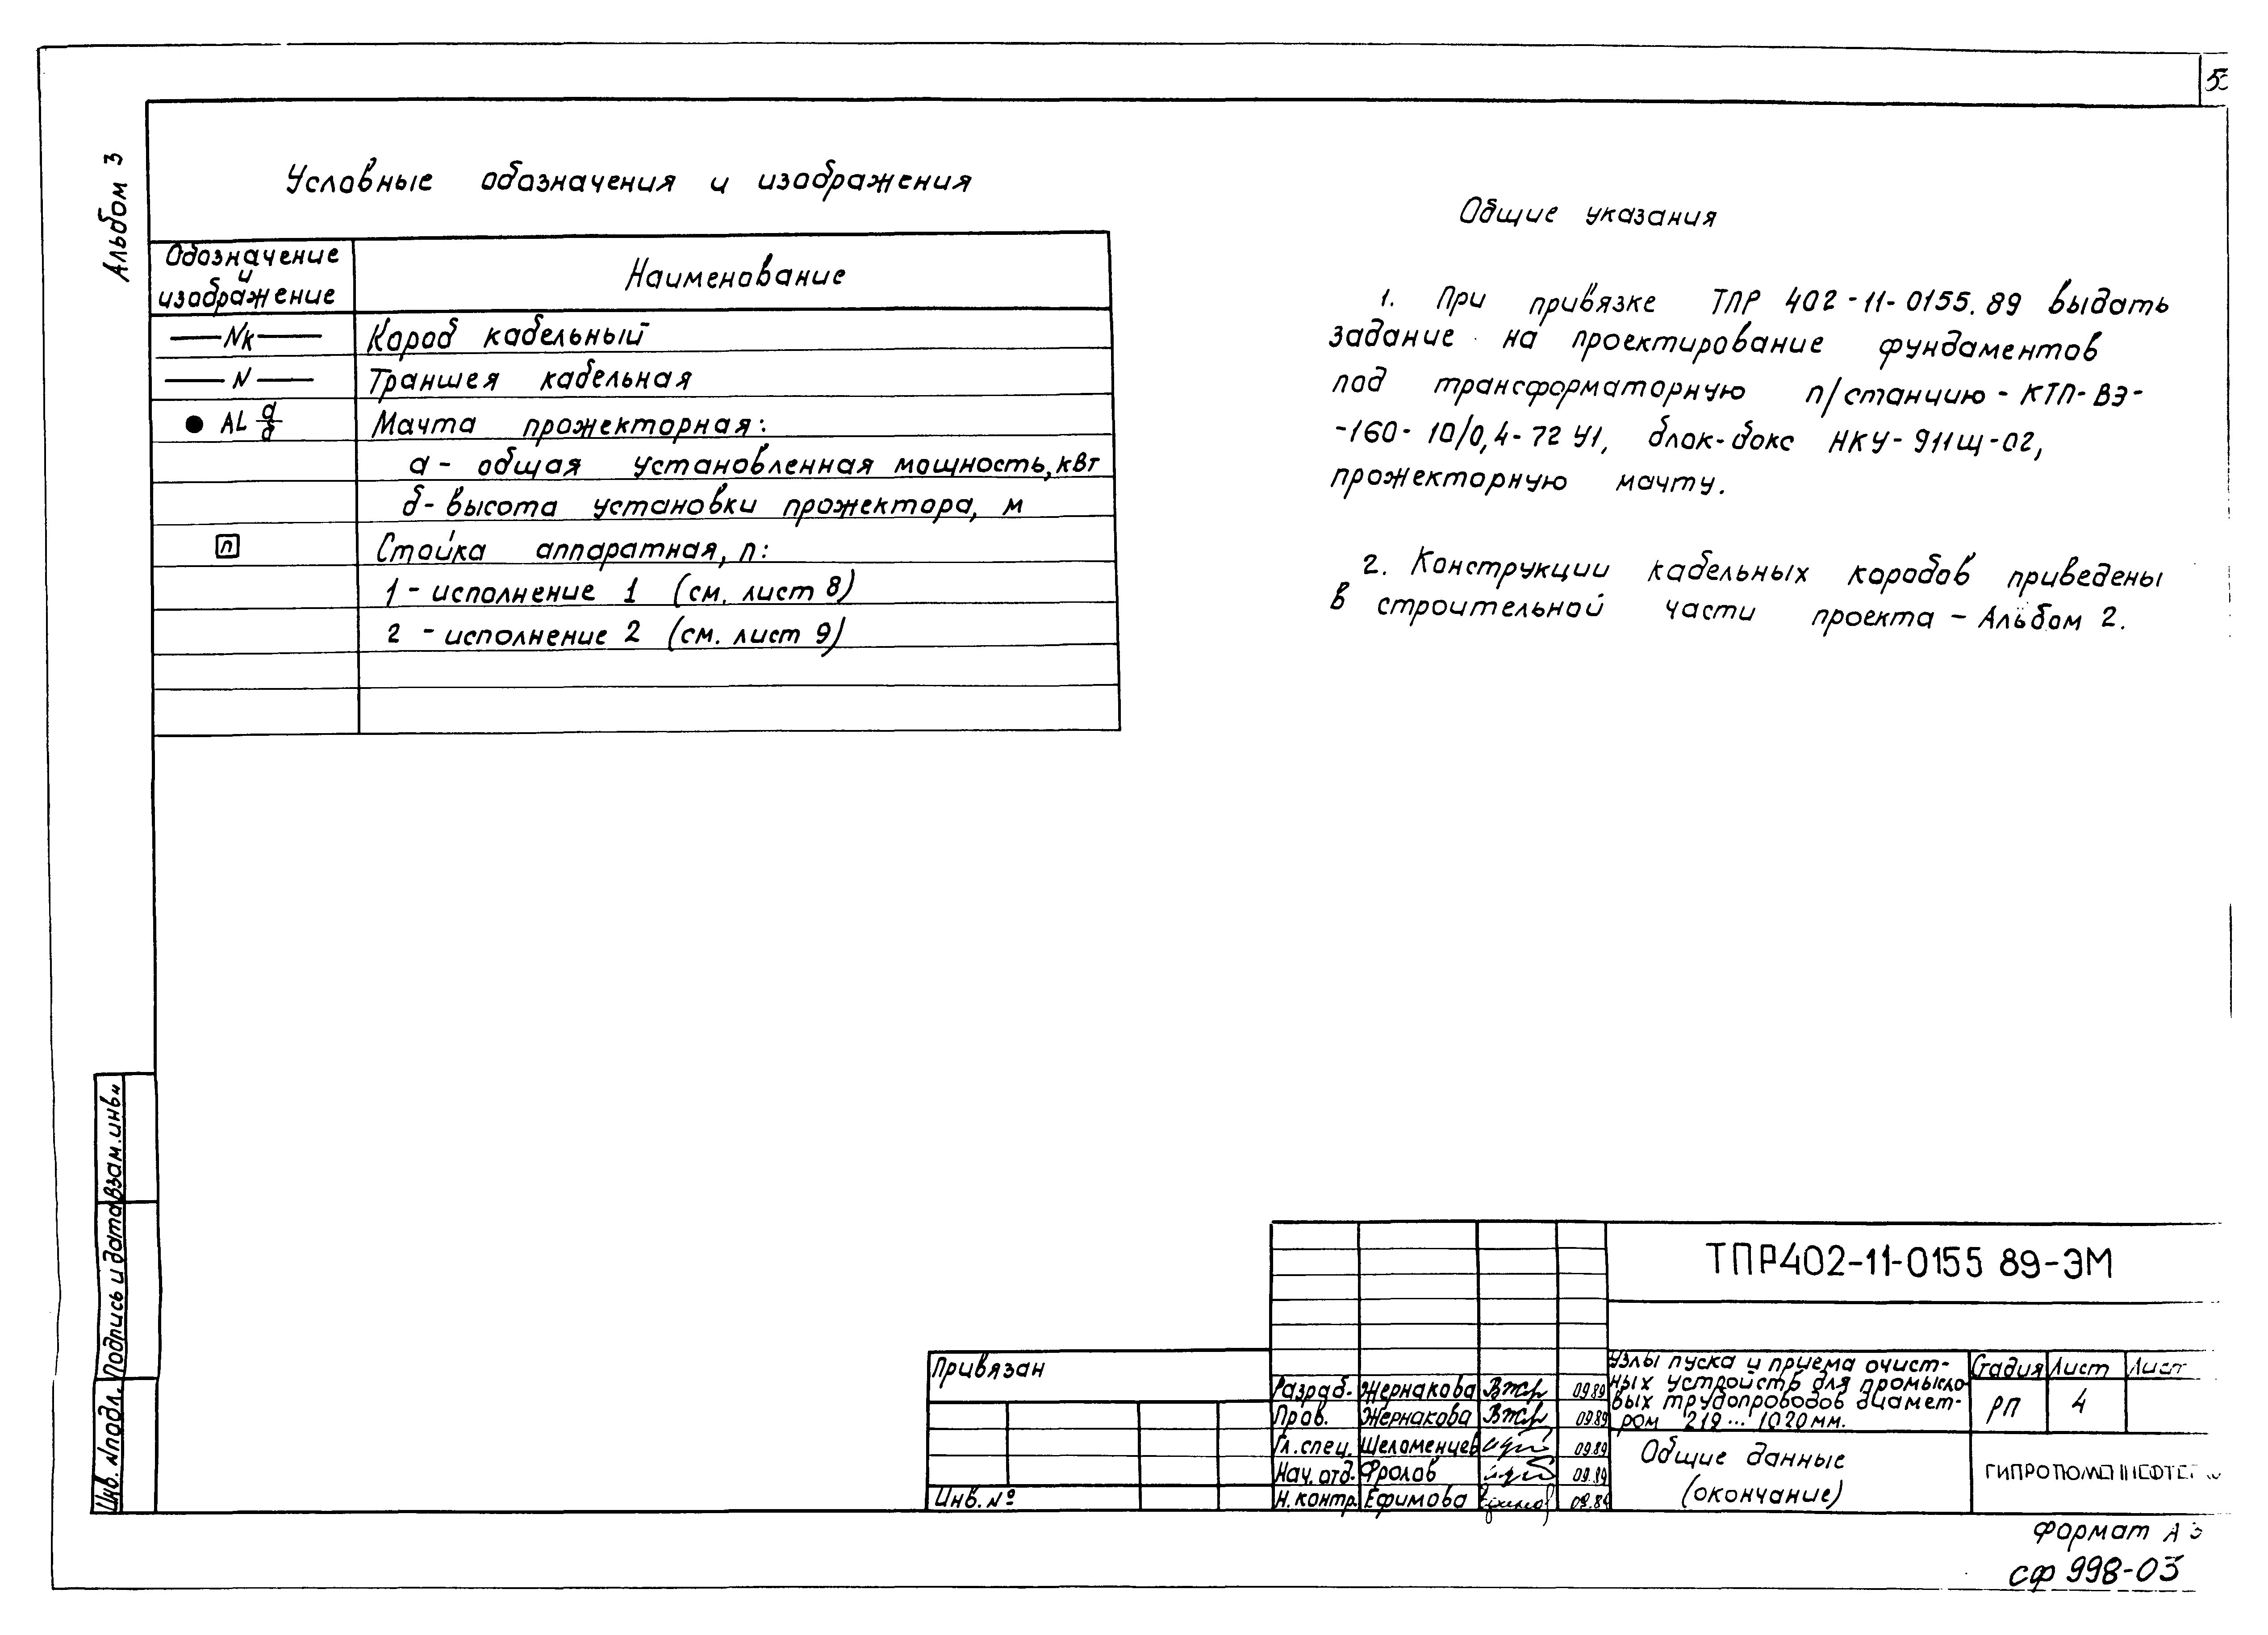 Альбом 3
Условные обозначения и изображения
Обозначение
и
изображение
Наименование
Nк
Короб кабельный
N
Траншея кабельная
AL а/б
Мачта прожекторная:
а - общая установленная мощность, кВт
б - высота установки прожектора, м
п
Стойка аппаратная, п:
1 - исполнение 1 (см. лист 8)
2 - исполнение 2 (см. лист 9)
Общие указания
1. При привязке ТПР 402-11-0155.89 выдать
задание на проектирование фундаментов
под трансформаторную п/станцию - КТП-ВЭ-
-160-10/0,4-72 У1, блок-бокс НКУ-911Щ-02,
прожекторную мачту.
2. Конструкции кабельных коробов приведены
в строительной части проекта - Альбом 2.
Взам. инв.
Подпись и дата
Инв. № подл.
Привязан
Инв. №
Разраб. Жернакова 09.89
Пров. Жернакова 09.89
Гл. спец. Щеломенцев 09.89
Нач. отд. Фролов 09.89
Н. контр. Ефимова 09.89
ТПР402-11-0155 89-ЭМ
Узлы пуска и приема очист-
ных устройств для промысло
вых трубопроводов диамет-
ром 219... 1020 мм.
Стадия Лист Лист
РП 4
Общие данные
(окончание)
Формат А3
сф 998-03